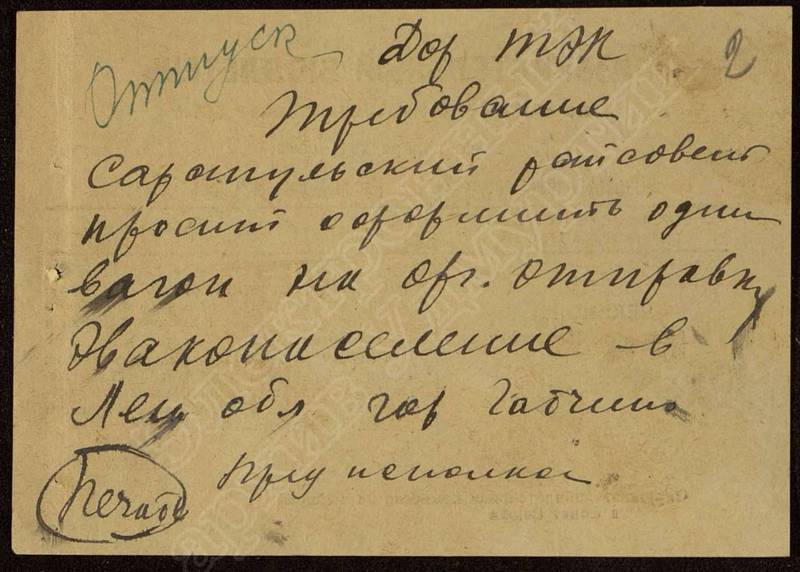 Отпуск
Дор ТЭК
2
Требование
Сарапульский райсовет
просит оформить один
вагон на орг. отправку
Эваконаселение в
Лен обл гор Гатчино
Печать
Пред исполкома